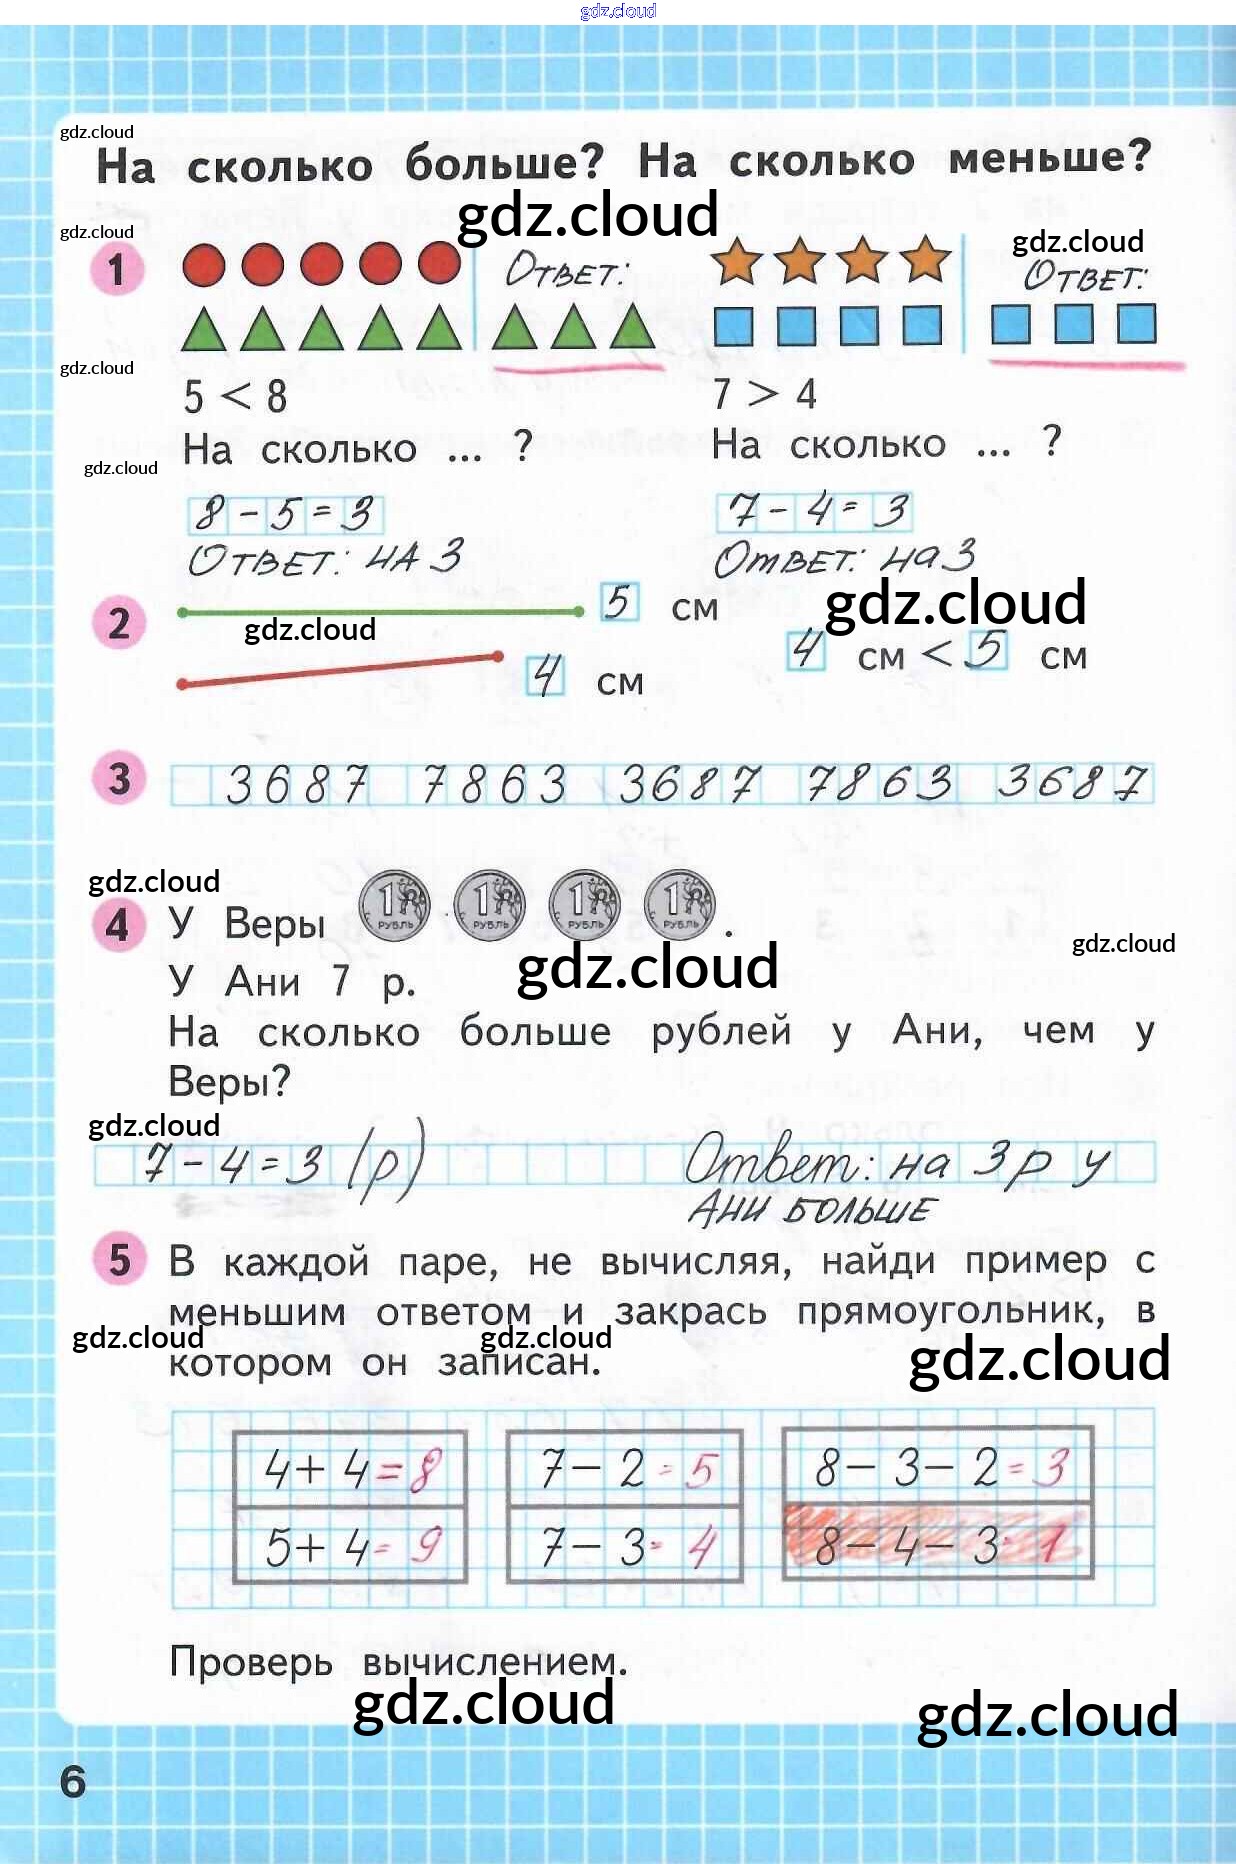 gdz.cloud
gdz.cloud
На сколько больше? На сколько меньше?
gdz.cloud
gdz.cloud
gdz.cloud
1
Ответ:
Ответ:
gdz.cloud
5 < 8
7 > 4
На сколько ... ?
На сколько ... ?
gdz.cloud
8 - 5 = 3
7 - 4 = 3
Ответ: на 3
Ответ: на 3
gdz.cloud
2
5 см
gdz.cloud
4 см < 5 см
4 см
3
3687 7863 3687 7863 3687
gdz.cloud
4 У Веры 1 РУБЛЬ 1 РУБЛЬ 1 РУБЛЬ 1 РУБЛЬ .
gdz.cloud
gdz.cloud
У Ани 7 р.
На сколько больше рублей у Ани, чем у
Веры?
gdz.cloud
7 - 4 = 3 (р)
Ответ: на 3 р у
Ани больше
5 В каждой паре, не вычисляя, найди пример с
меньшим ответом и закрась прямоугольник, в
gdz.cloud
gdz.cloud
gdz.cloud
котором он записан.
4 + 4 = 8
7 - 2 = 5
8 - 3 - 2 = 3
5 + 4 = 9
7 - 3 = 4
8 - 4 - 3 = 1
Проверь вычислением.
gdz.cloud
gdz.cloud
6